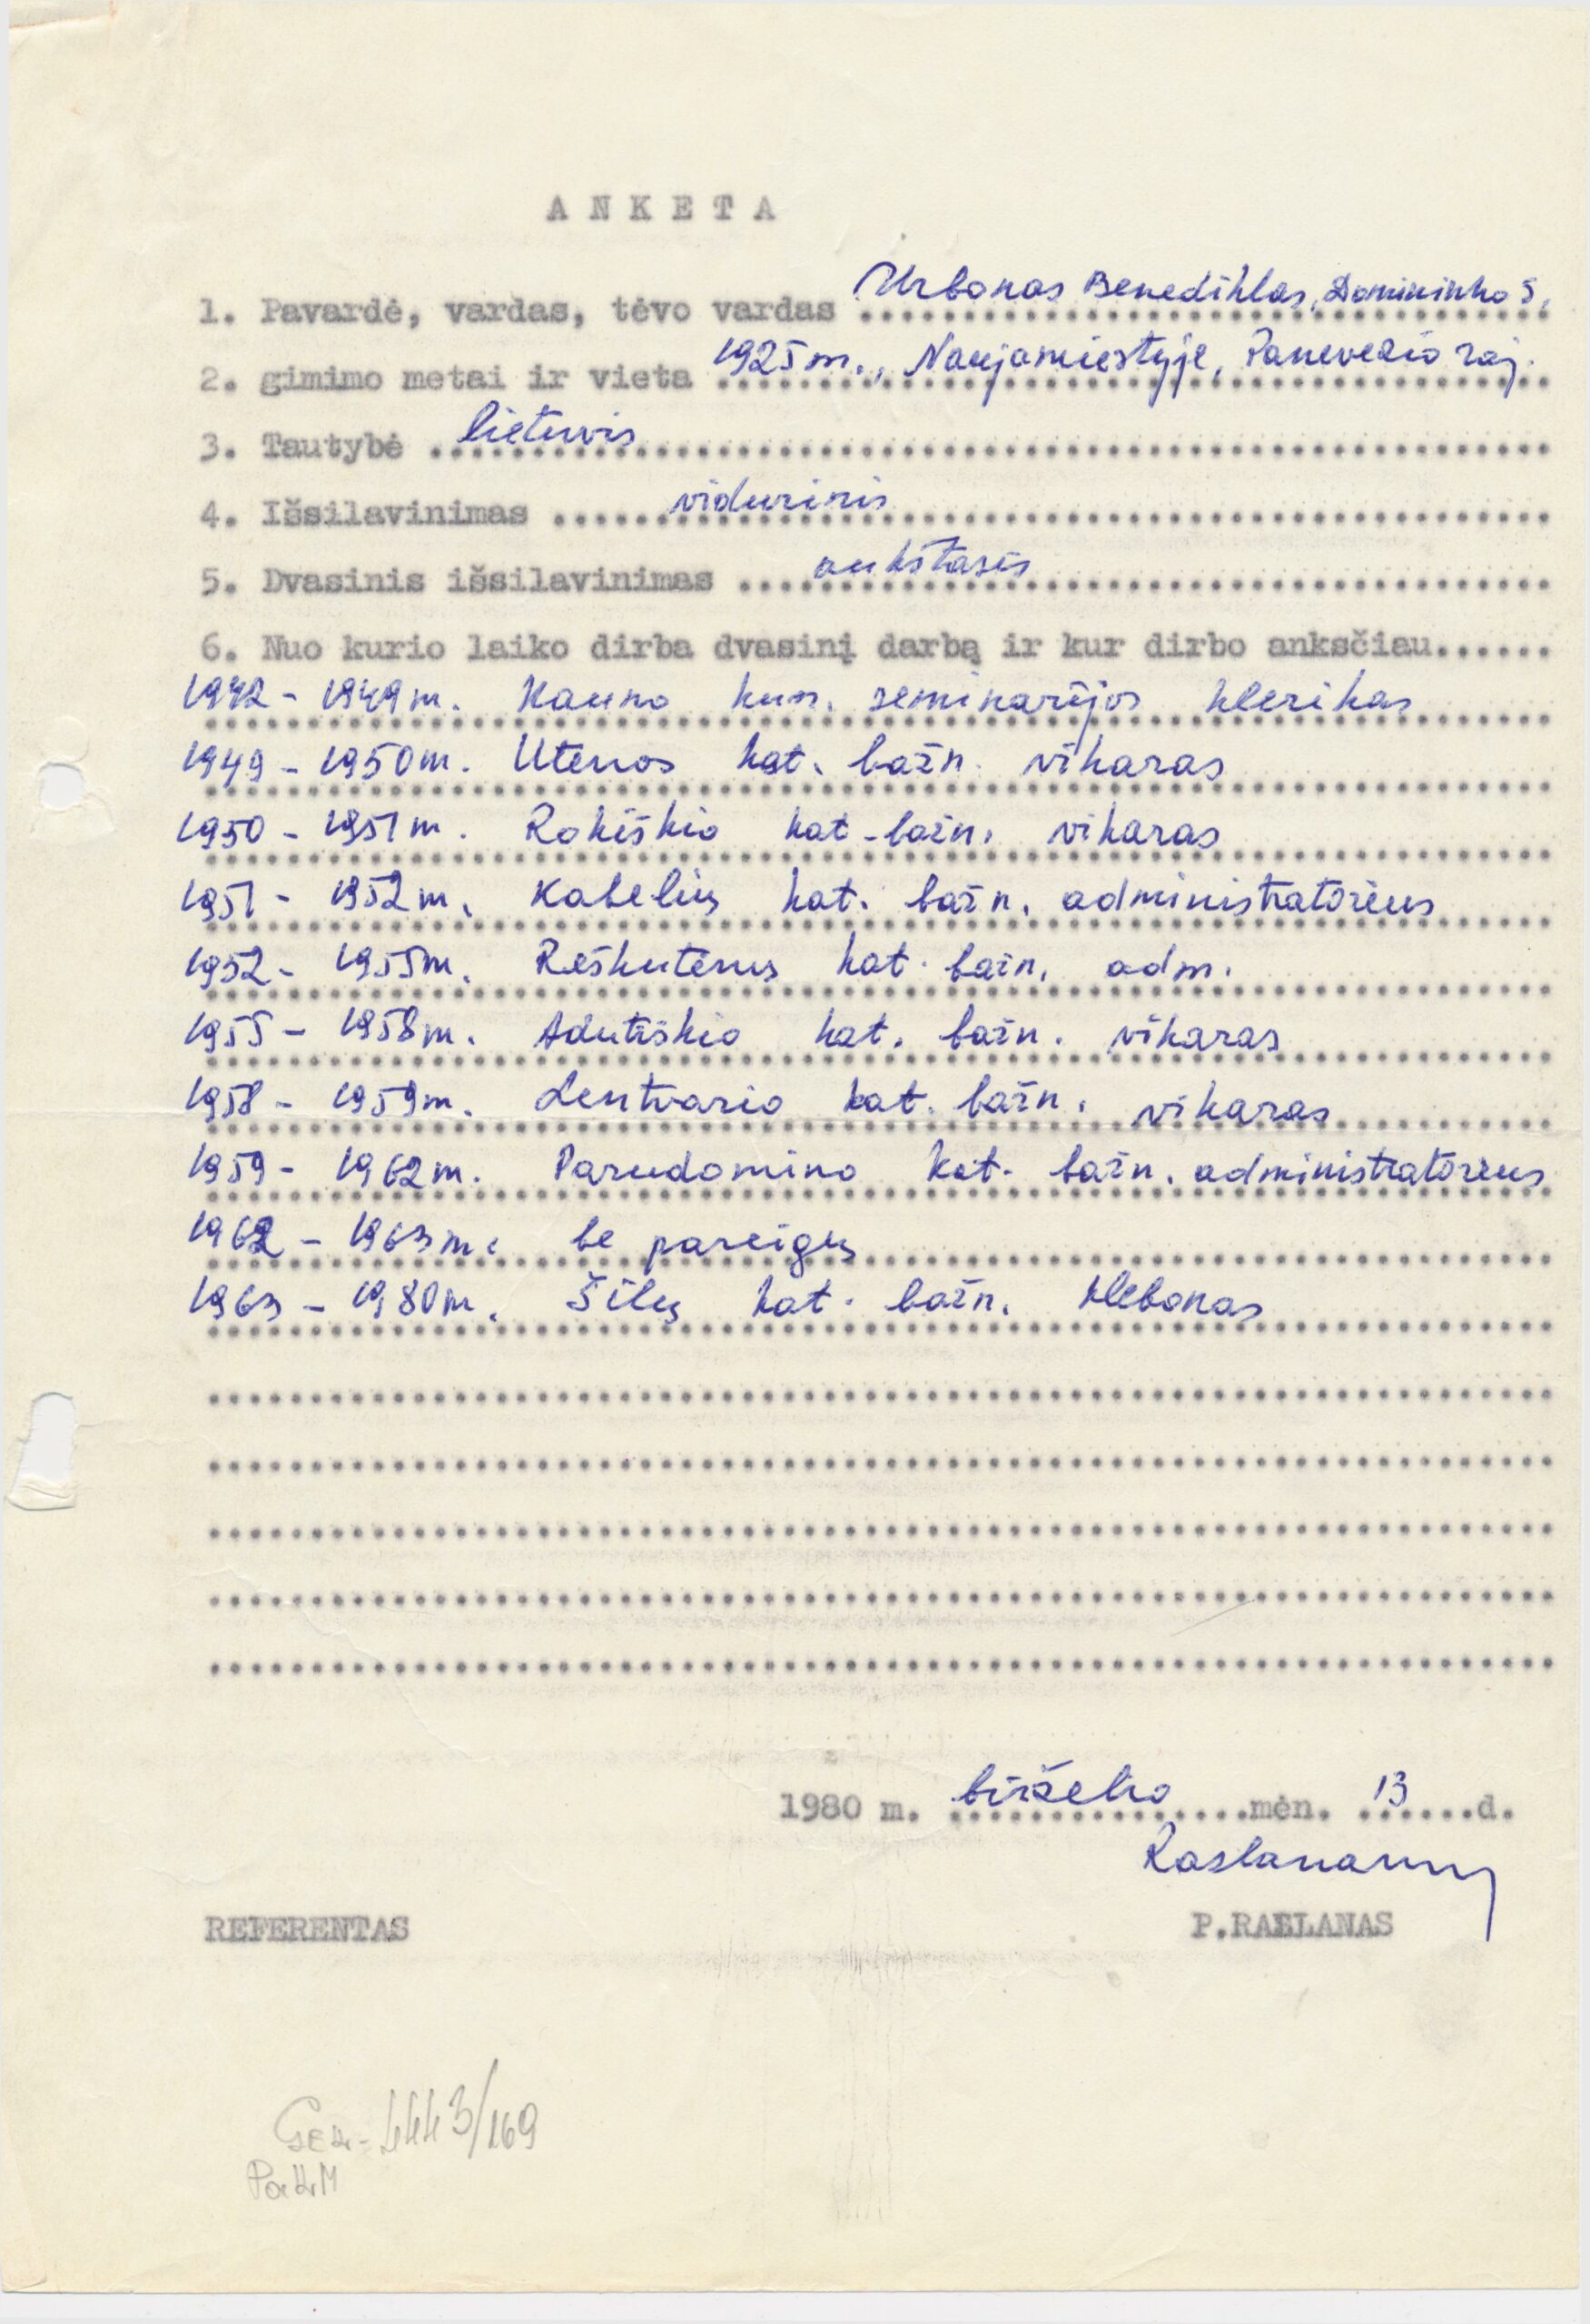 ANKETA
1. Pavardė, vardas, tėvo vardas Urbonas Benediktas, Domininko s.
2. gimimo metai ir vieta 1925 m., Naujamiestyje, Panevezio raj.
3. Tautybė lietuvis
4. Išsilavinimas vidurinis
5. Dvasinis išsilavinimas aukštasis
6. Nuo kurio laiko dirba dvasinį darbą ir kur dirbo anksčiau
1942 - 1949 m. Kauno kun. seminarijos klerikas
1949 - 1950 m. Utenos kat. bažn. vikaras
1950 - 1951 m. Rokiškio kat. bažn. vikaras
1951 - 1952 m. Kabelių kat. bažn. administratorius
1952 - 1955 m. Reškutėnų kat. bažn. adm.
1955 - 1958 m. Adutiškio kat. bažn. vikaras
1958 - 1959 m. Lentvario kat. bažn. vikaras
1959 - 1962 m. Parudomino kat. bažn. administratorius
1962 - 1963 m. be pareigų
1963 - 1980 m. Šilų kat. bažn. klebonas
1980 m. birželio mėn. 13 d.
Raslanas
REFERENTAS P.RASLANAS
GEK-4443/169
PaKM